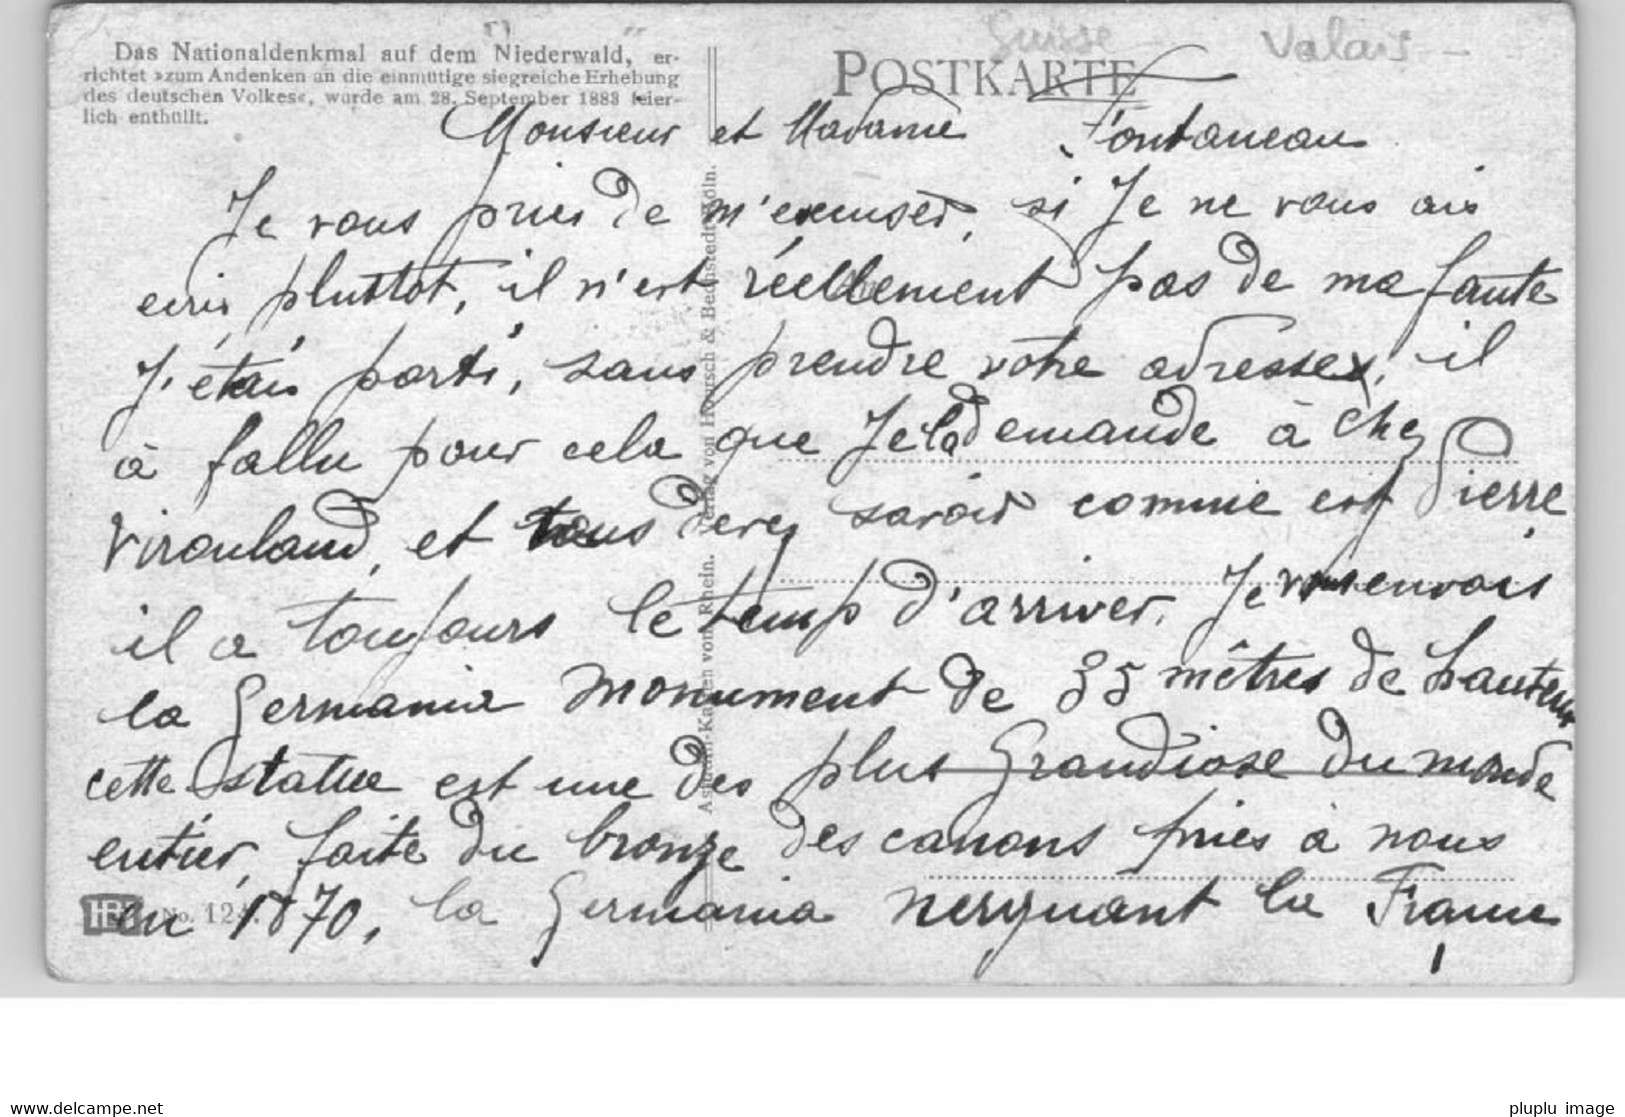 Suisse Valais
Das Nationaldenkmal auf dem Niederwald, er-
richtet »zum Andenken an die einmütige siegreiche Erhebung
des deutschen Volkes«, wurde am 28. September 1883 feier-
lich enthüllt.
POSTKARTE
Monsieur et Madame Fontaneau
Je vous pries de m'exeuser, si Je ne vous ais
ecris pluttot, il n'est réellement pas de ma faute
J'étais parti, sans prendre votre adresse, il
à fallu pour cela que Je la demande à chez
Virouland, et vous devez savoir comme est Pierre
il a toujours le temp d'arriver. Je vous envois
la Germania monument de 35 mêtres de hauteur
cette statue est une des plus Grandiose du monde
entier, faite du bronze des canons pries à nous
en 1870, la Germania nerguant la France
Asphalt-Karten vom Rhein. Verlag von Hoursch & Bechstedt, Köln.
No. 124.
www.delcampe.net
pluplu image